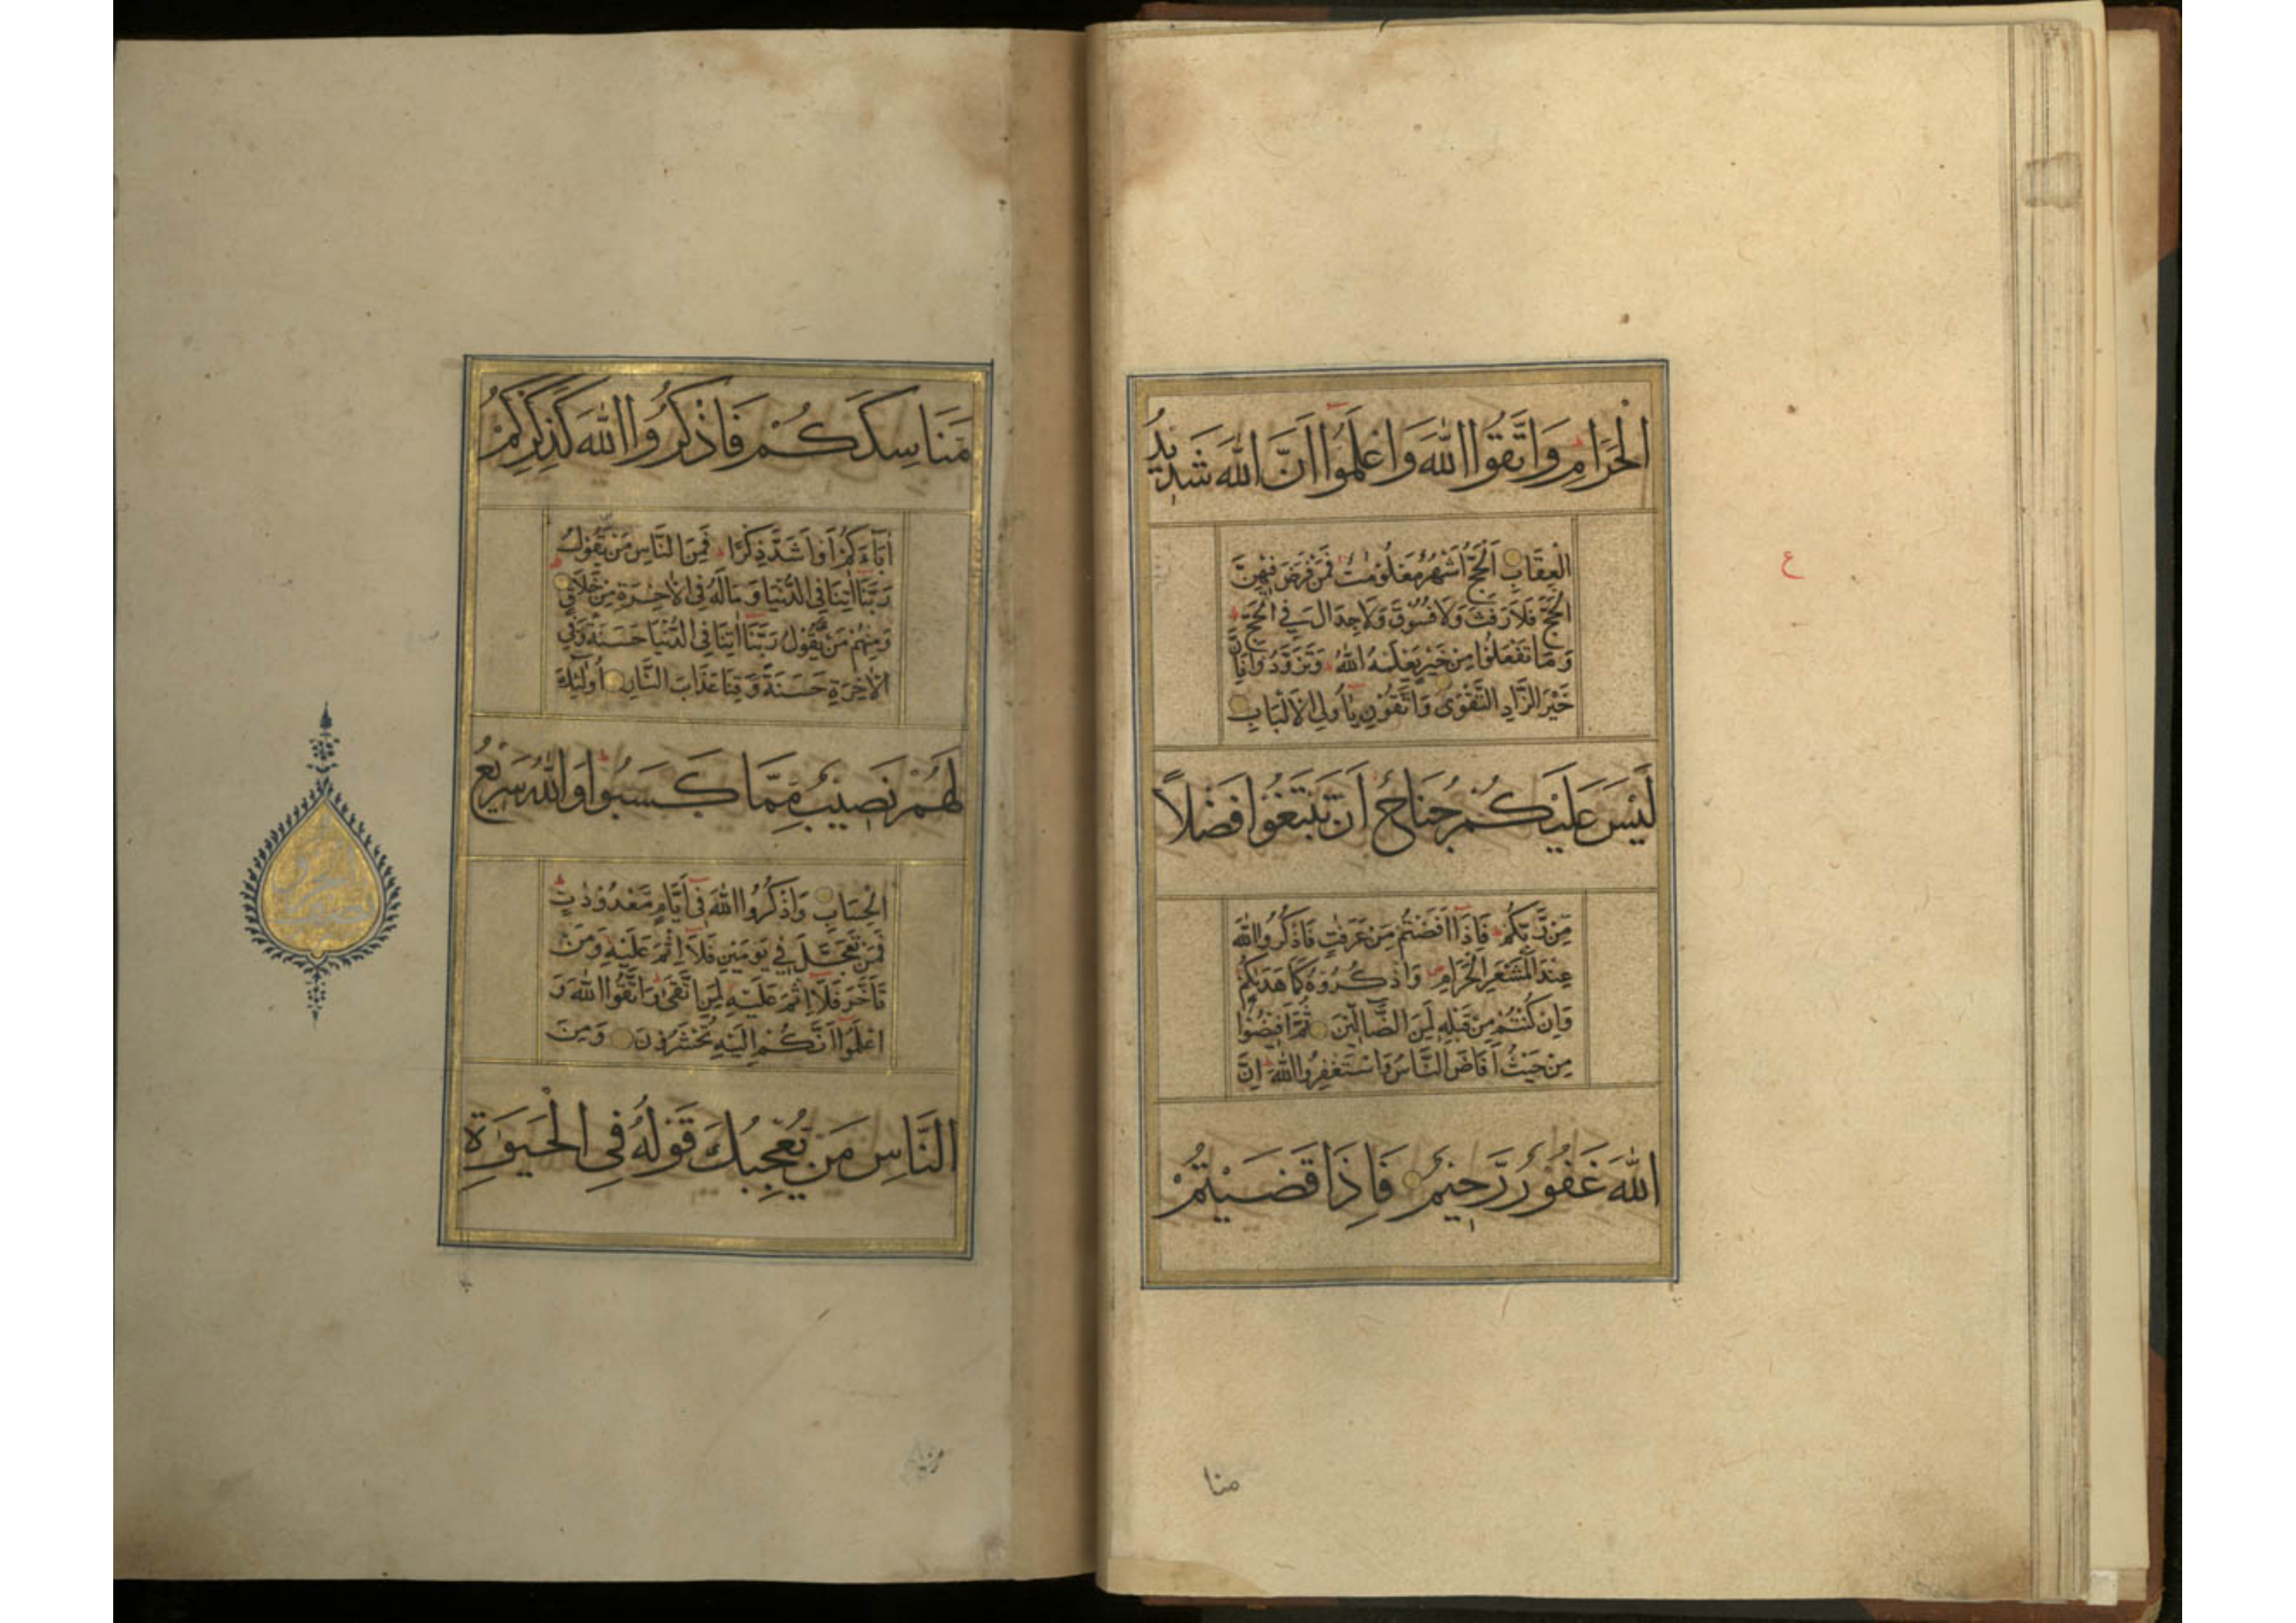 الْحَرَامِ وَاتَّقُوا اللهَ وَاعْلَمُوا اَنَّ اللهَ شَدِيدُ
الْعِقَابِ اَلْحَجُّ اَشْهُرٌ مَعْلُومٰتٌ فَمَنْ فَرَضَ فِيْهِنَّ
الْحَجَّ فَلَا رَفَثَ وَلَا فُسُوْقَ وَلَا جِدَالَ فِي الْحَجِّ
وَمَا تَفْعَلُوْا مِنْ خَيْرٍ يَعْلَمْهُ اللهُ وَتَزَوَّدُوْا فَاِنَّ
خَيْرَ الزَّادِ التَّقْوٰى وَاتَّقُوْنِ يٰاُولِى الْاَلْبَابِ
لَيْسَ عَلَيْكُمْ جُنَاحٌ اَنْ تَبْتَغُوْا فَضْلًا
مِنْ رَّبِّكُمْ فَاِذَا اَفَضْتُمْ مِنْ عَرَفٰتٍ فَاذْكُرُوا اللهَ
عِنْدَ الْمَشْعَرِ الْحَرَامِ وَاذْكُرُوْهُ كَمَا هَدٰىكُمْ
وَاِنْ كُنْتُمْ مِنْ قَبْلِهٖ لَمِنَ الضَّآلِّيْنَ ثُمَّ اَفِيْضُوْا
مِنْ حَيْثُ اَفَاضَ النَّاسُ وَاسْتَغْفِرُوا اللهَ اِنَّ
اللهَ غَفُوْرٌ رَّحِيْمٌ فَاِذَا قَضَيْتُمْ
منا
مَنَاسِكَكُمْ فَاذْكُرُوا اللهَ كَذِكْرِكُمْ
اٰبَآءَكُمْ اَوْ اَشَدَّ ذِكْرًا فَمِنَ النَّاسِ مَنْ يَّقُوْلُ
رَبَّنَا اٰتِنَا فِى الدُّنْيَا وَمَا لَهُ فِى الْاٰخِرَةِ مِنْ خَلَاقٍ
وَمِنْهُمْ مَنْ يَّقُوْلُ رَبَّنَا اٰتِنَا فِى الدُّنْيَا حَسَنَةً وَفِى
الْاٰخِرَةِ حَسَنَةً وَقِنَا عَذَابَ النَّارِ اُولٰٓئِكَ
لَهُمْ نَصِيْبٌ مِمَّا كَسَبُوْا وَاللهُ سَرِيْعُ
الْحِسَابِ وَاذْكُرُوا اللهَ فِى اَيَّامٍ مَعْدُوْدٰتٍ
فَمَنْ تَعَجَّلَ فِي يَوْمَيْنِ فَلَا اِثْمَ عَلَيْهِ وَمَنْ
تَاَخَّرَ فَلَا اِثْمَ عَلَيْهِ لِمَنِ اتَّقٰى وَاتَّقُوا اللهَ وَ
اعْلَمُوْا اَنَّكُمْ اِلَيْهِ تُحْشَرُوْنَ وَمِنَ
النَّاسِ مَنْ يُعْجِبُكَ قَوْلُهُ فِى الْحَيٰوةِ
ع